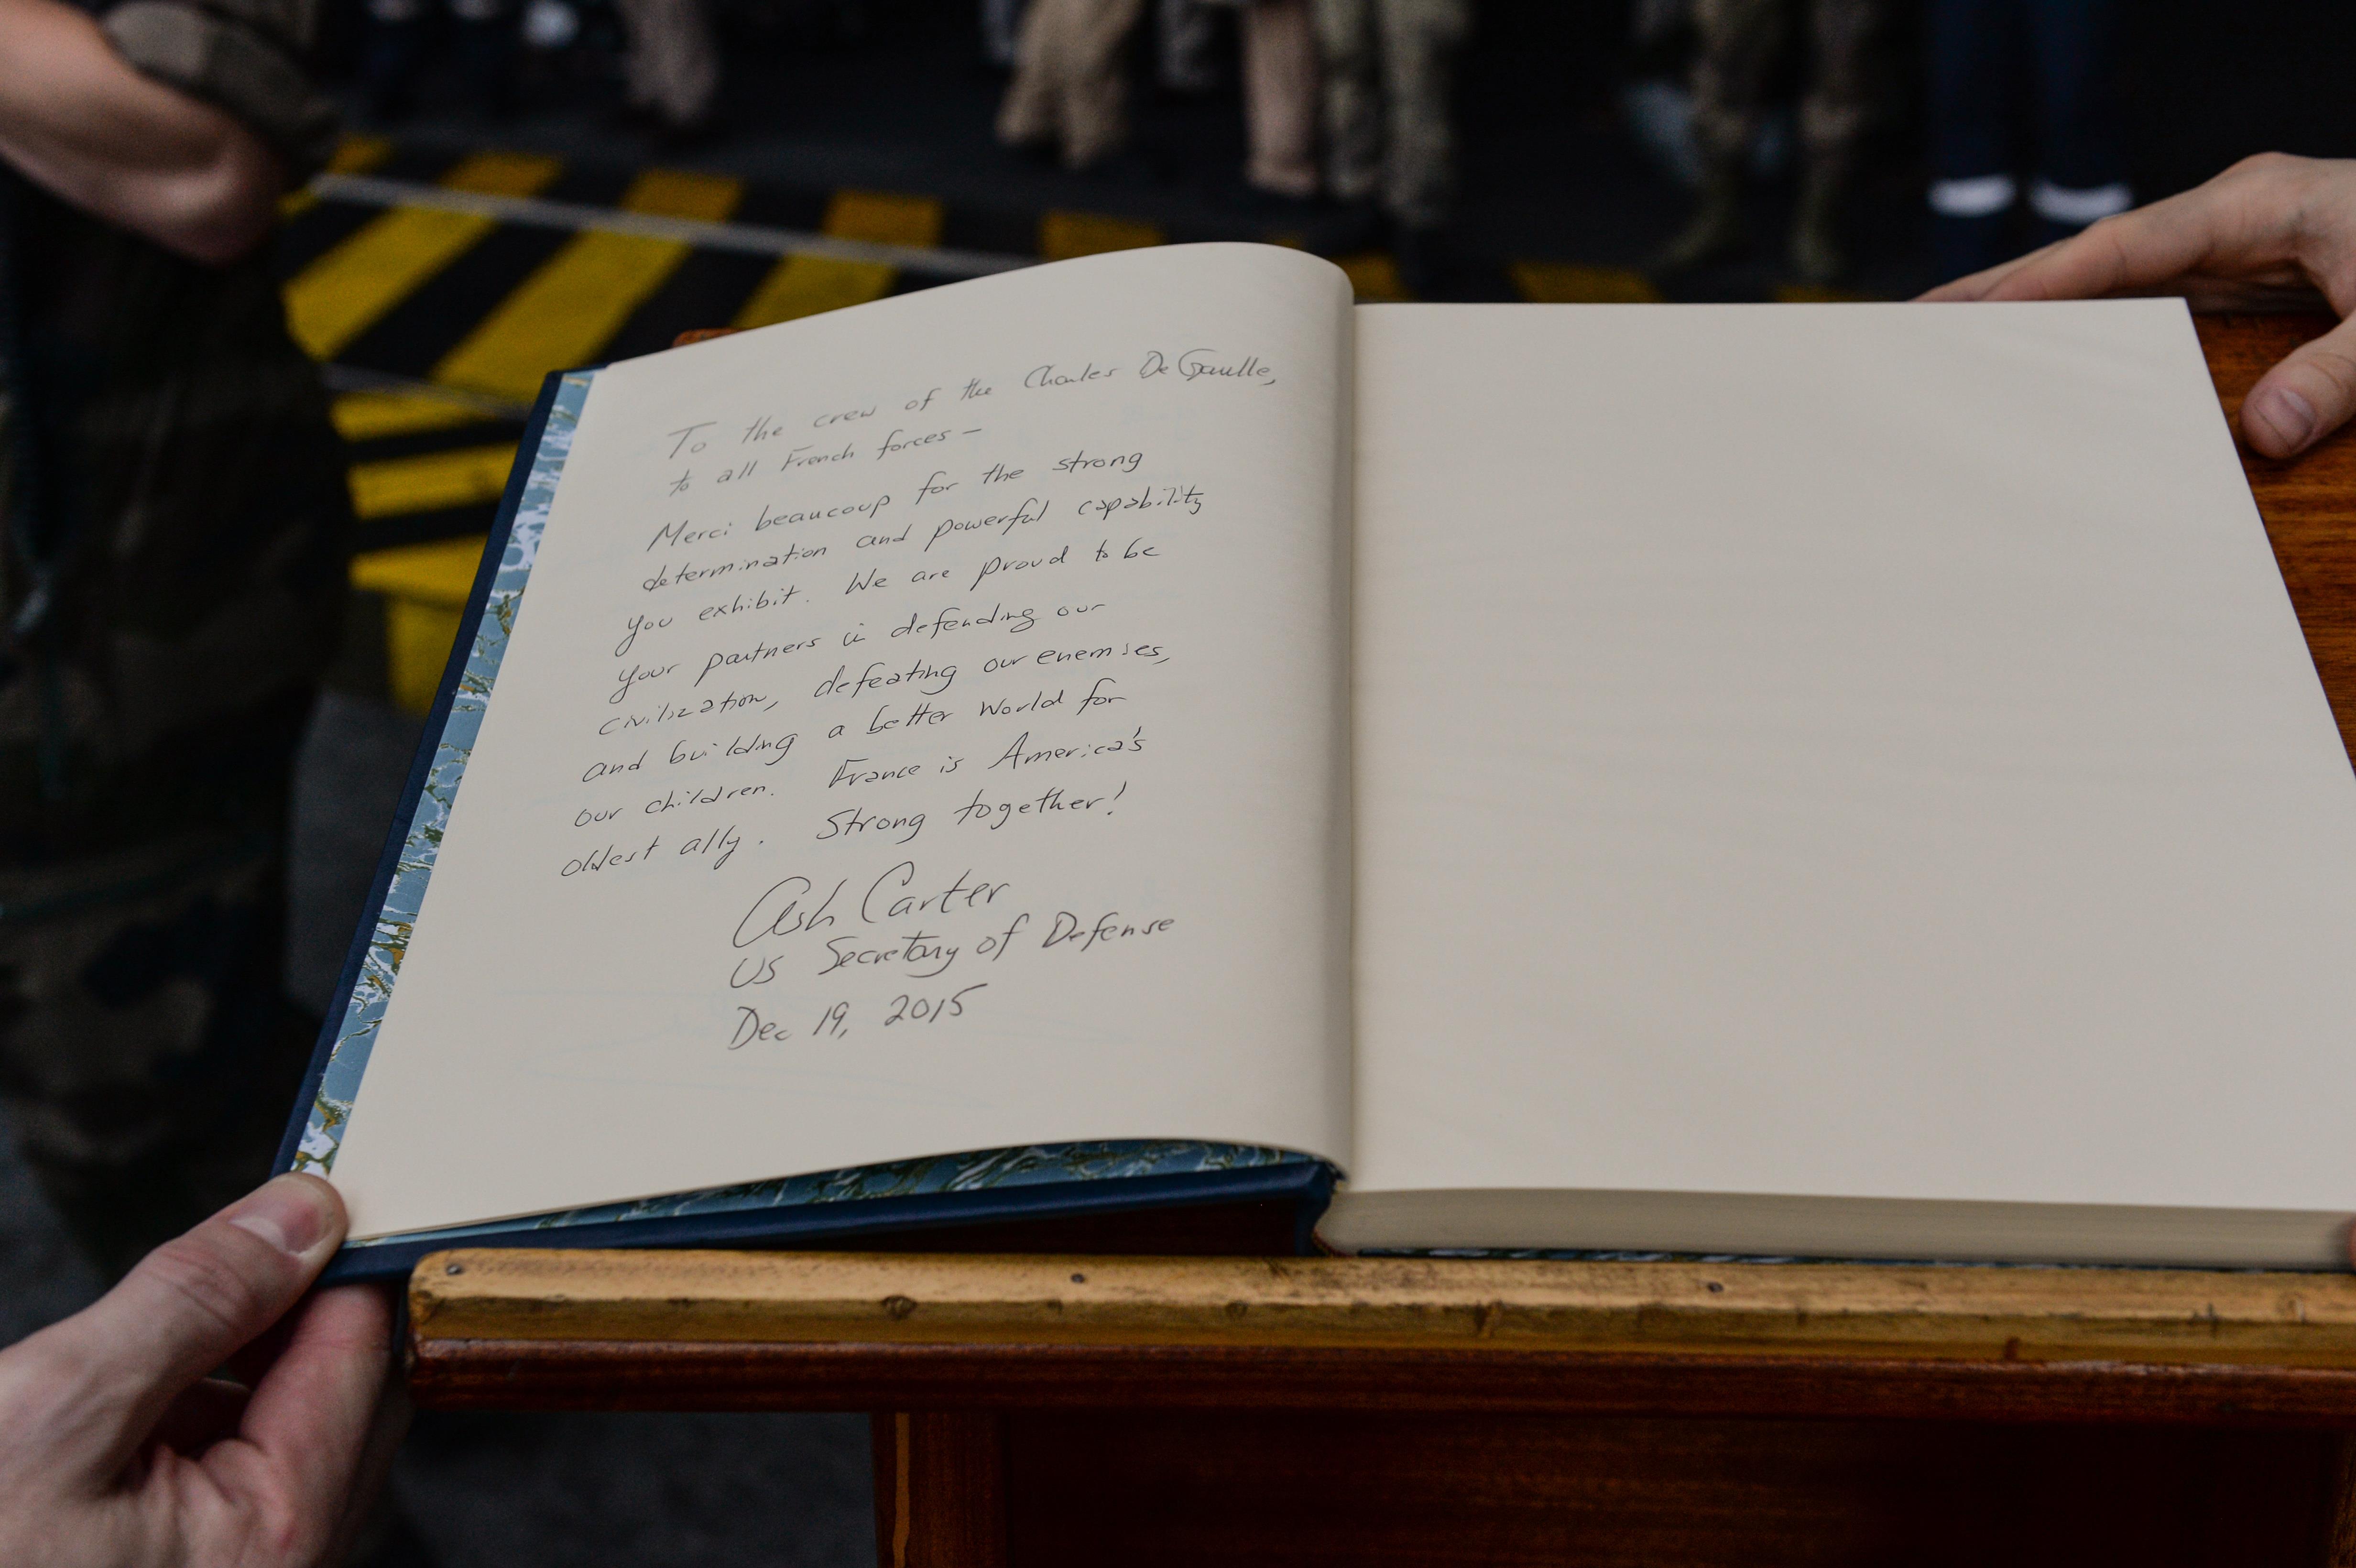 To the crew of the Charles De Gaulle,
to all French forces –
Merci beaucoup for the strong
determination and powerful capability
you exhibit. We are proud to be
your partners in defending our
civilization, defeating our enemies,
and building a better world for
our children. France is America's
oldest ally. Strong together!
Ash Carter
US Secretary of Defense
Dec 19, 2015